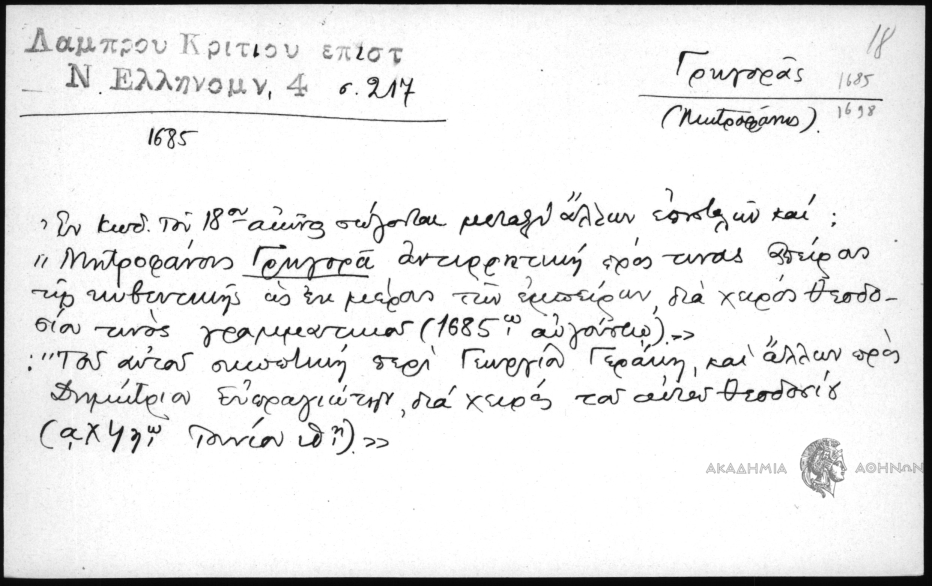 Λαμπρου Κριτιου επιστ
Ν. Ελληνομν, 4 σ. 217
1685
18
Γρηγορᾶς
1685
(Μητροφάνης).
1698
Ἐν κωδ. τοῦ 18ου αἰῶνος σώζονται μεταξὺ ἄλλων ἐπιστολῶν καὶ :
"Μητροφάνους Γρηγορᾶ ἀντιρρητικὴ πρὸς τινας ἀπείρους
τῆς κυβευτικῆς ὡς ἐκ μέρους τῶν ἐμπείρων, διὰ χειρὸς Θεοδο-
σίου τινὸς γραμματικοῦ (1685ῳ αὐγούστῳ).»
:"Τοῦ αὐτοῦ σκωπτικὴ περὶ Γεωργίου Γεράκη, καὶ ἄλλων πρὸς
Δημήτριον Εὐπραγιώτην, διὰ χειρὸς τοῦ αὐτοῦ Θεοδοσίου
(αχϟηῳ Ἰουνίου ιθῃ).»
ΑΚΑΔΗΜΙΑ ΑΘΗΝΩΝ